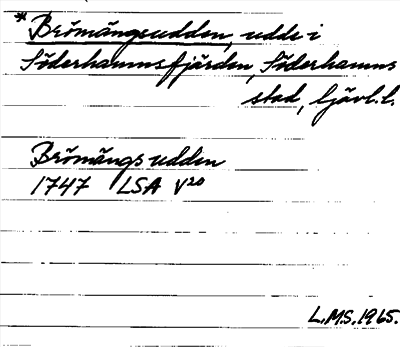 *Brömängsudden, udde i
Söderhamnsfjärden, Söderhamns
stad, Gävl.l.
Brömängs udden
1747 LSA V20
L.M.S. 1965.